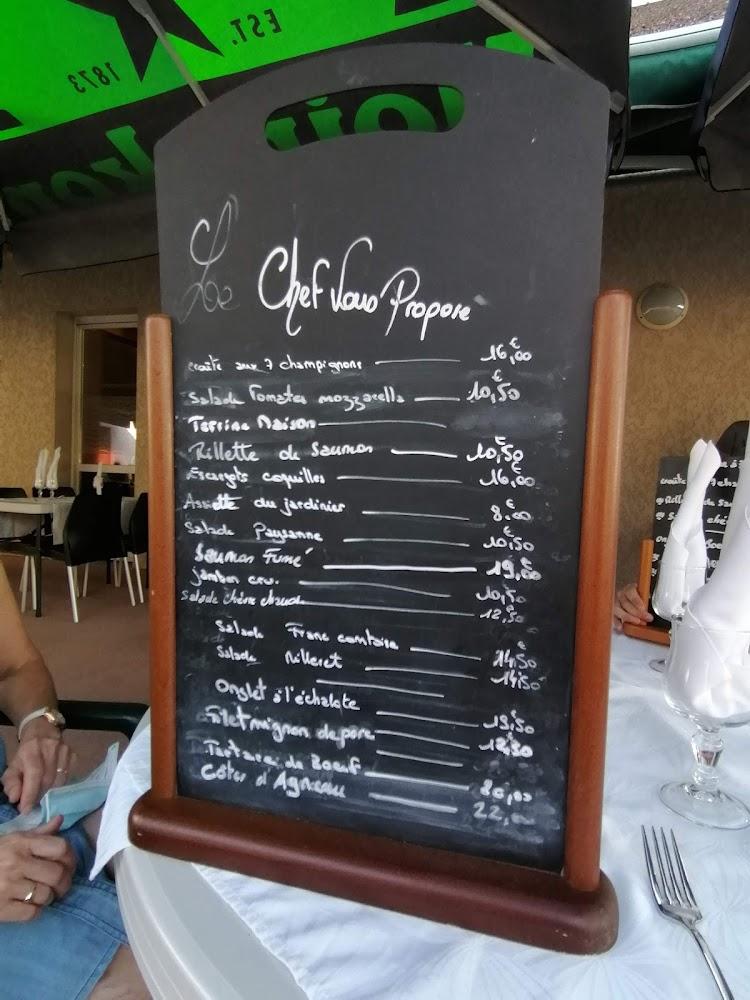 EST.
1873
Le Chef Vous Propose
croûte aux 7 champignons 16,00€
Salade Tomates mozzarella 10,50€
Terrine Maison
Rillette de Saumon 10,50€
Escargots coquilles 16,00€
Assiette du jardinier 8.00€
Salade Paysanne 10,50€
Saumon Fumé 19,00€
jambon cru. 10,50€
Salade chèvre chaud 12,50€
Salade Franc comtoise 14,50€
Salade Milleret 14,50€
Onglet à l'échalote 19,50
Filet mignon de porc
Tartare de Boeuf 20,00
Côtes d'Agneau 22,